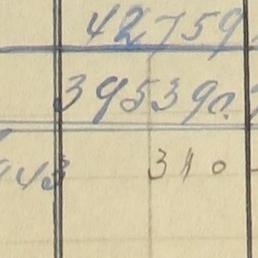 42759
39539
443 310